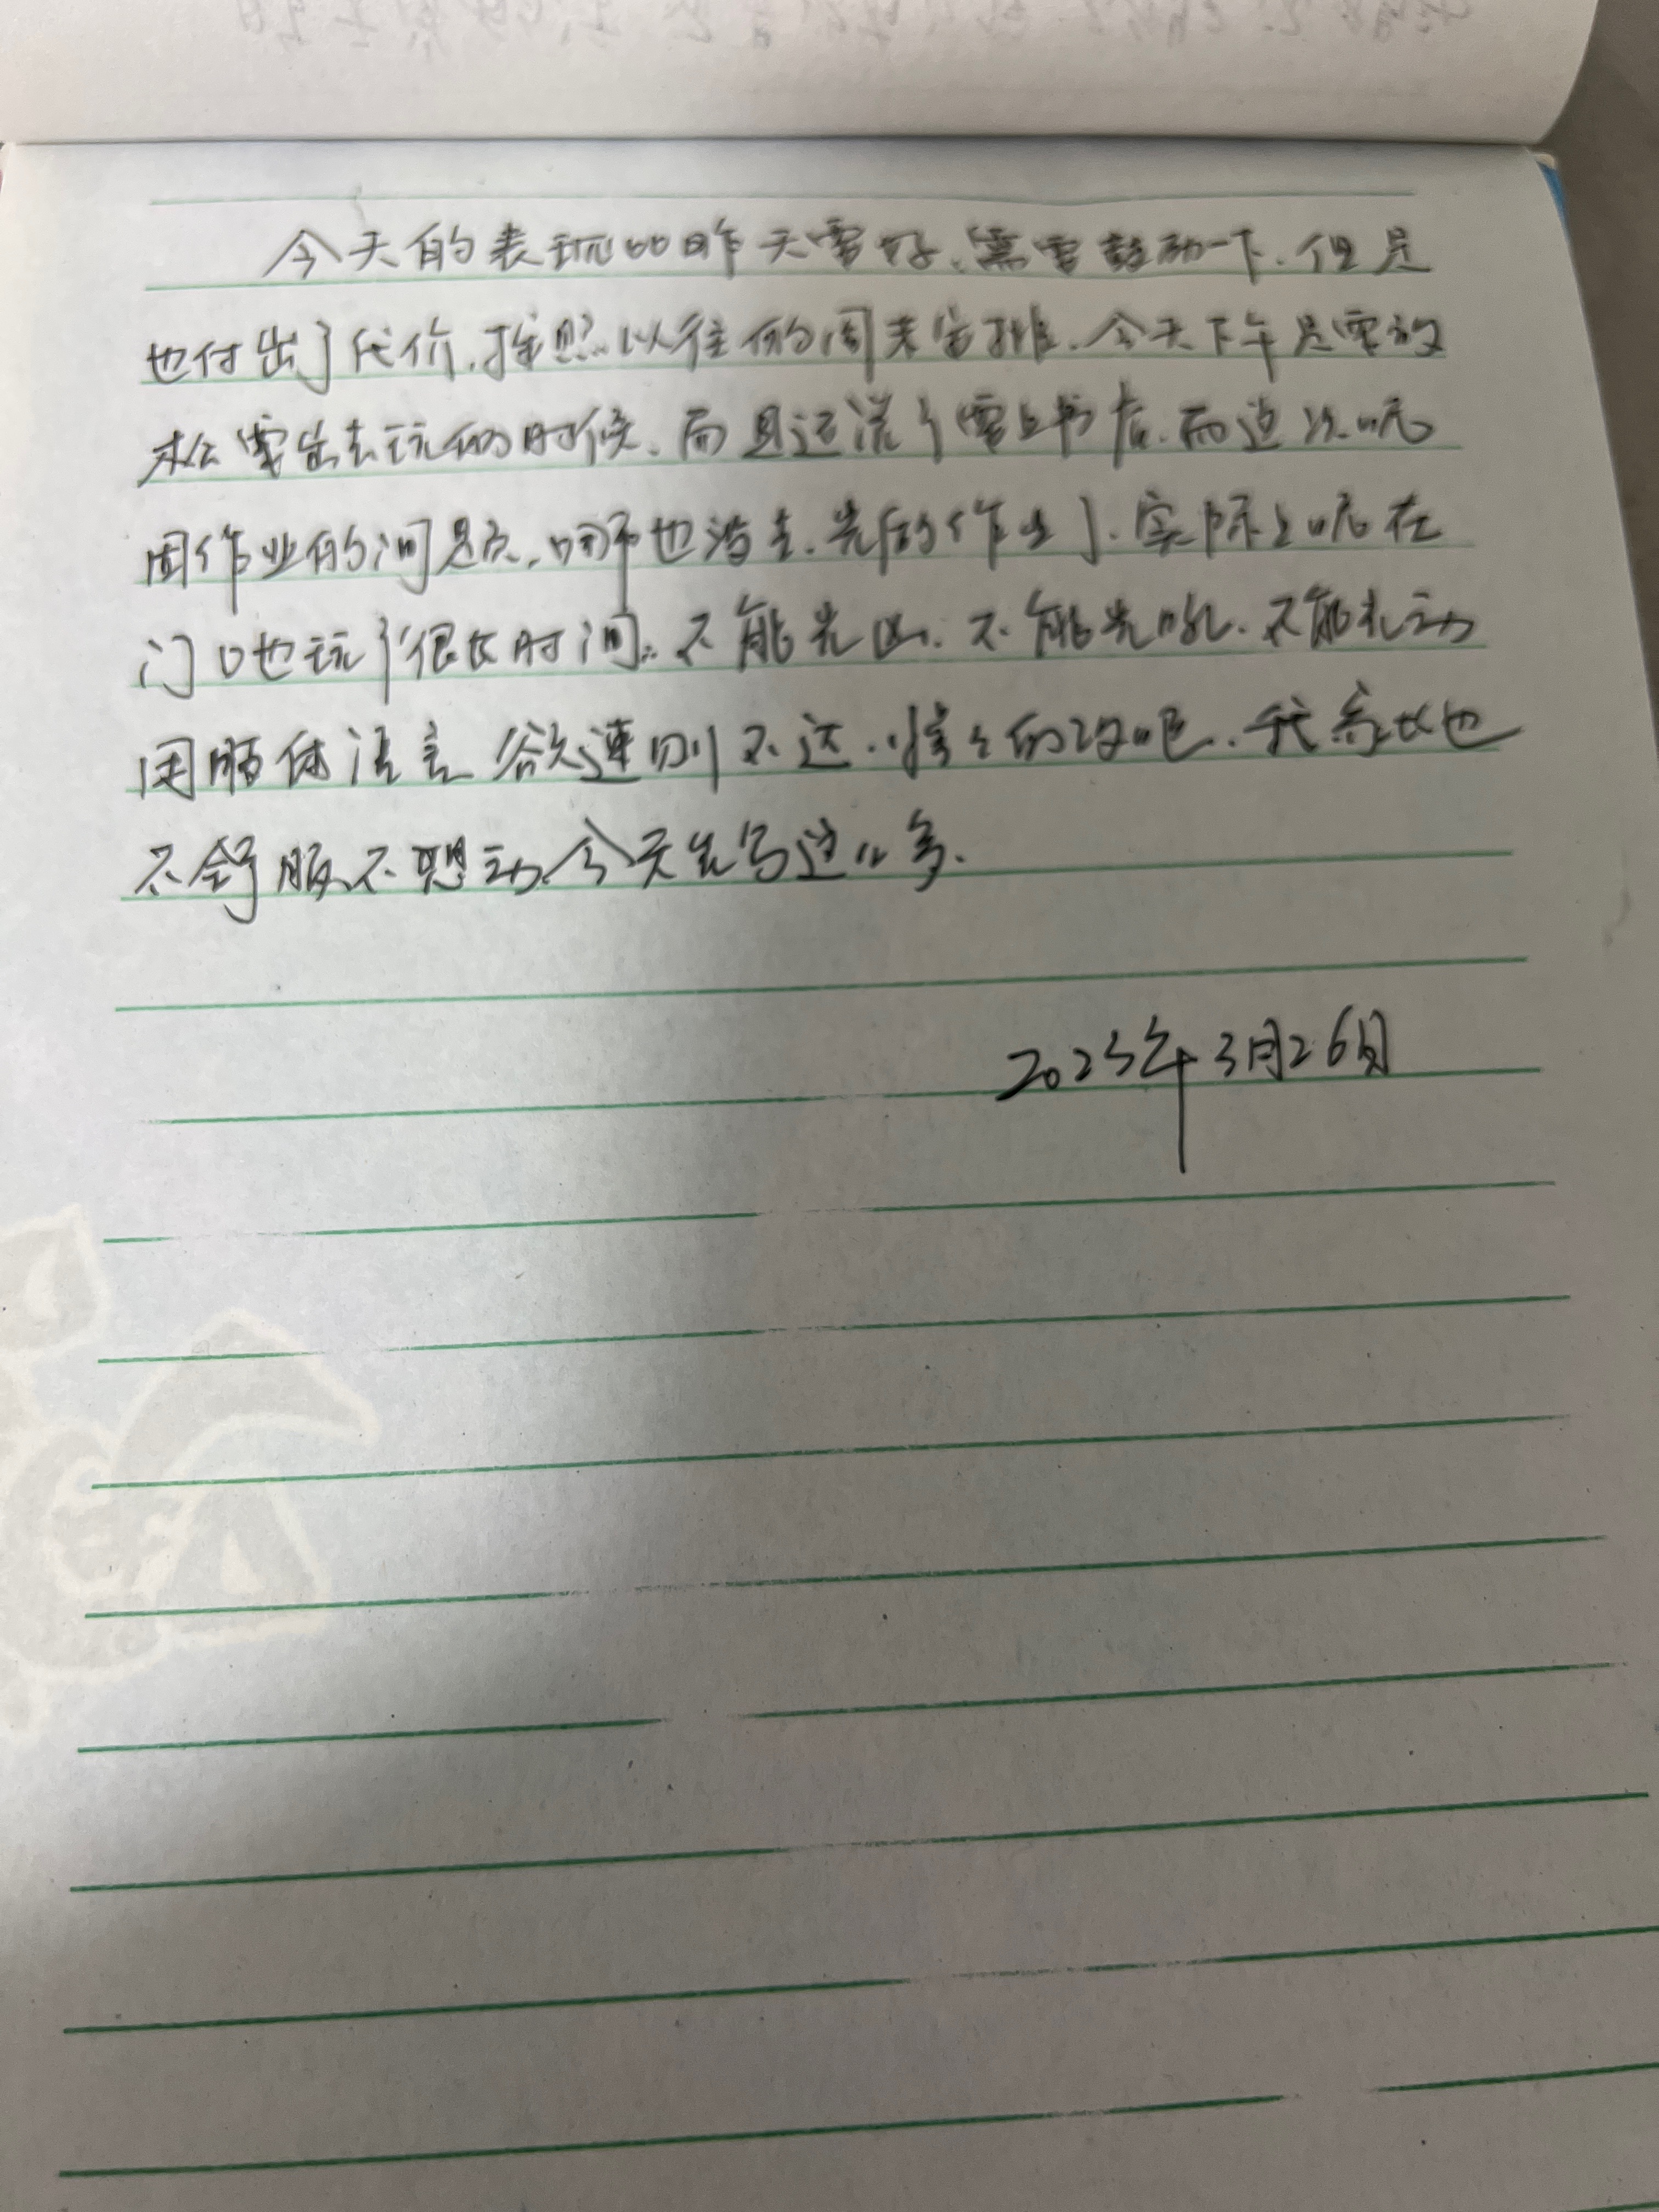 今天的表现比昨天要好、需要鼓励一下.但是
也付出了代价.按照以往的周末安排.今天下午是要放
松要出去玩的时候、而且还说了要上书店.而这次呢
因作业的问题.哪也没去.光的作业了.实际上呢在
门口也玩了很长时间.不能光凶.不能光吼.不能
用肢体语言 欲速则不达.慢々的改吧.我家长也
不舒服不想动.今天先写这么多.
2023年3月26日